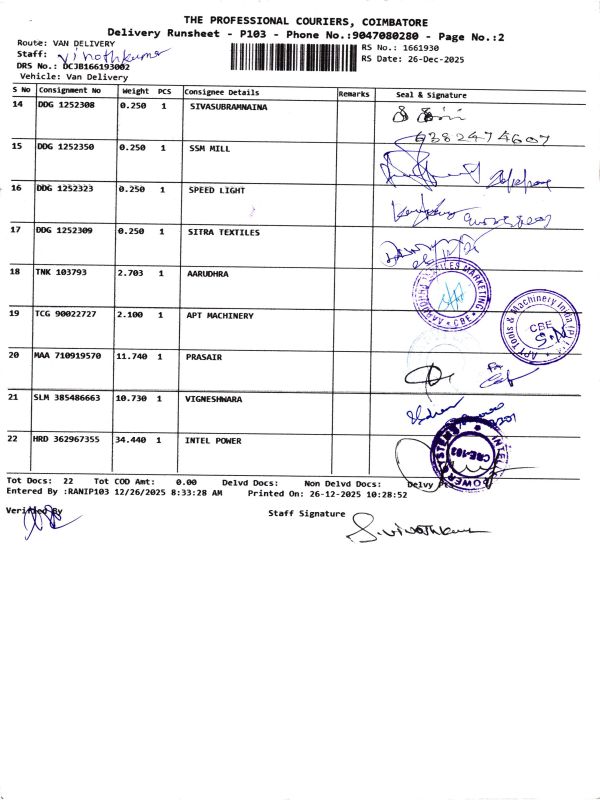 THE PROFESSIONAL COURIERS, COIMBATORE
Delivery Runsheet - P103 - Phone No.:9047080280 - Page No.:2
Route: VAN DELIVERY RS No.: 1661930
Staff: Vinothkumar RS Date: 26-Dec-2025
DRS No.: DCJB166193002
Vehicle: Van Delivery
S No Consignment No Weight PCS Consignee Details Remarks Seal & Signature
14 DDG 1252308 0.250 1 SIVASUBRAMNAINA
9382474607
15 DDG 1252350 0.250 1 SSM MILL
16 DDG 1252323 0.250 1 SPEED LIGHT
17 DDG 1252309 0.250 1 SITRA TEXTILES
18 TNK 103793 2.703 1 AARUDHRA
19 TCG 90022727 2.100 1 APT MACHINERY
APT Tools & Machinery India (P) CBE
20 MAA 710919570 11.740 1 PRASAIR
21 SLM 385486663 10.730 1 VIGNESHWARA
22 HRD 362967355 34.440 1 INTEL POWER
INTEL POWER SYSTEMS CBE-103
Tot Docs: 22 Tot COD Amt: 0.00 Delvd Docs: Non Delvd Docs: Delvy
Entered By :RANIP103 12/26/2025 8:33:28 AM Printed On: 26-12-2025 10:28:52
Verified By Staff Signature
S. Vinothkumar